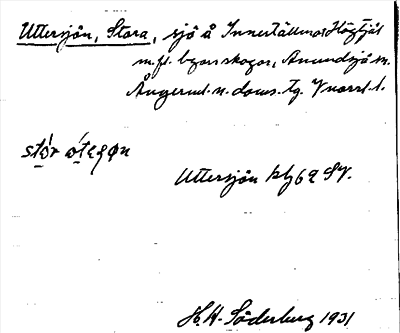 Uttersjön, Stora, sjö å Innertällmo, Högfjäl
m. fl. byars skogar, Anundsjö sn.
Ångerml. n. doms. tg. Vnorrl. l.
stór ótęʂøn
Uttersjön kbg 62 SV.
H. H. Söderberg 1931